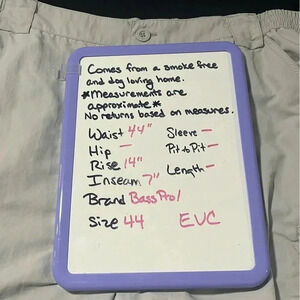 Comes from a smoke free
and dog loving home.
*Measurements are
approximate*
No returns based on measures.
Waist 44" Sleeve —
Hip — Pit to Pit —
Rise 14" Length —
Inseam 7"
Brand Bass Pro/
Size 44 EUC